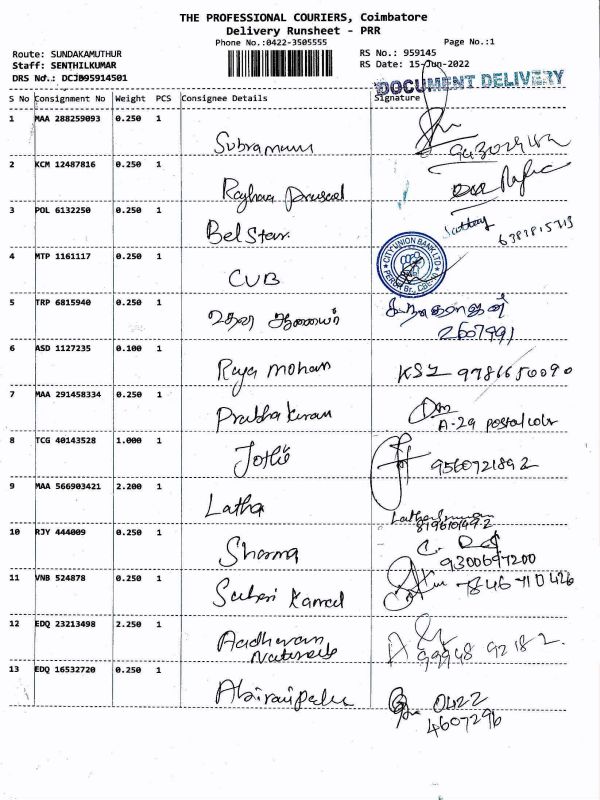 THE PROFESSIONAL COURIERS, Coimbatore
Delivery Runsheet - PRR
Phone No.:0422-3505555
Page No.:1
Route: SUNDAKAMUTHUR
RS No.: 959145
Staff: SENTHILKUMAR
RS Date: 15-Jun-2022
DRS No.: DCJB95914501
DOCUMENT DELIVERY
S No Consignment No Weight PCS Consignee Details Signature
1 MAA 288259093 0.250 1
Subramani
2 KCM 12487816 0.250 1
Raghava Prasad
3 POL 6132250 0.250 1
Bel Star
6382815713
4 MTP 1161117 0.250 1
CUB
CITY UNION BANK LTD
5 TRP 6815940 0.250 1
2607991
6 ASD 1127235 0.100 1
Raja mohan
9786650090
7 MAA 291458334 0.250 1
Prabha karan
A-29 postal colony
8 TCG 40143528 1.000 1
Jothi
9560721892
9 MAA 566903421 2.200 1
Latha
8196101492
10 RJY 444009 0.250 1
Sharma
9300697200
11 VNB 524878 0.250 1
7846710426
12 EDQ 23213498 2.250 1
Aadhavan
Naturals
99948 92182.
13 EDQ 16532720 0.250 1
0422
4607296